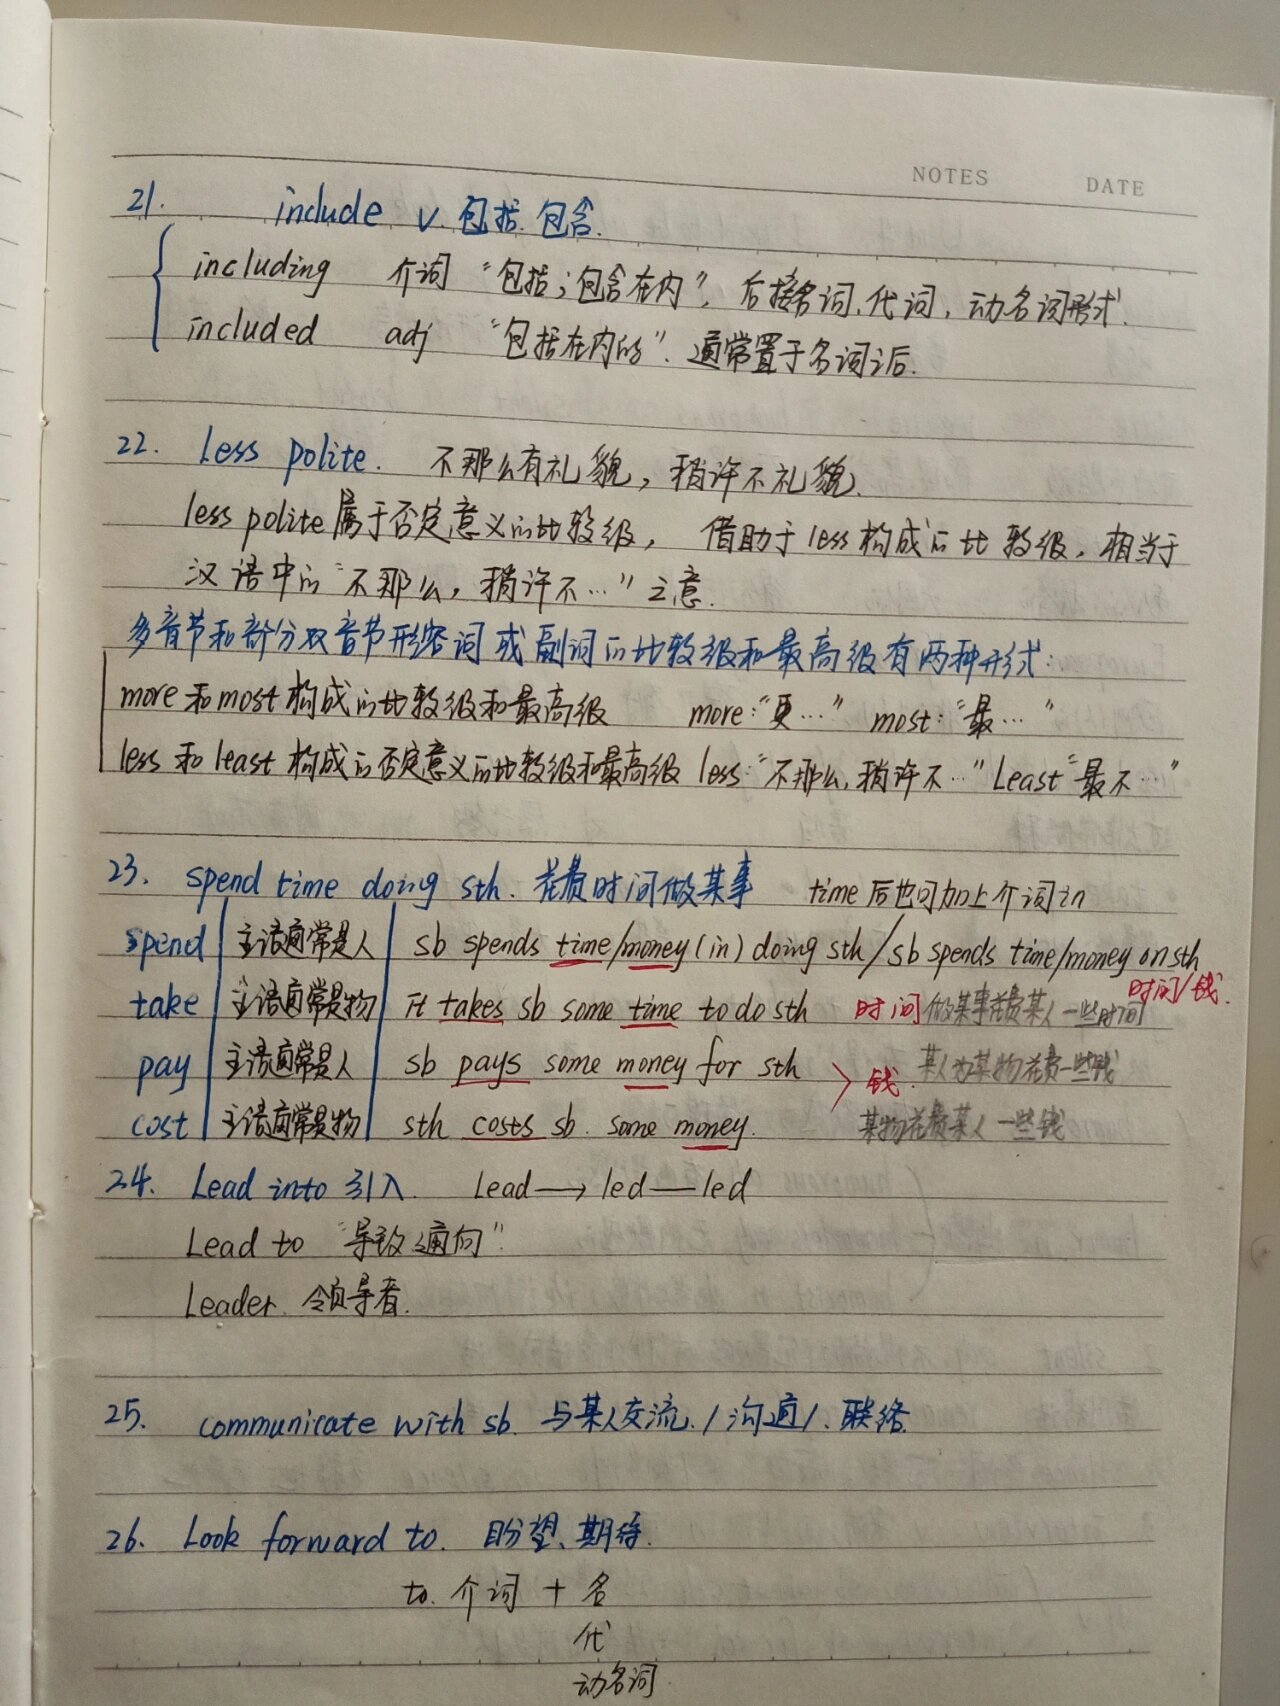 NOTES DATE
21. include v. 包括. 包含.
including 介词 “包括；包含在内”，后接名词、代词，动名词形式.
included adj “包括在内的”. 通常置于名词之后.
22. less polite. 不那么有礼貌，稍许不礼貌.
less polite 属于否定意义的比较级， 借助于 less 构成的比较级，相当于
汉语中的“不那么，稍许不…”之意.
多音节和部分双音节形容词或副词的比较级和最高级有两种形式:
more 和 most 构成的比较级和最高级 more:“更…” most:“最…”
less 和 least 构成的否定意义的比较级和最高级 less:“不那么,稍许不…” Least “最不…”
23. spend time doing sth. 花费时间做某事 time 后也可加上介词 in
spend 主语通常是人 sb spends time/money (in) doing sth / sb spends time/money on sth
时间/钱.
take 主语通常是物 it takes sb some time to do sth 时间 做某事花费某人一些时间
pay 主语通常是人 sb pays some money for sth 钱. 某人为某物花费一些钱
cost 主语通常是物 sth costs sb. some money. 某物花费某人一些钱
24. Lead into 引入. Lead → led — led
Lead to “导致；通向”
Leader. 领导者.
25. communicate with sb. 与某人交流./沟通/.联络.
26. Look forward to. 盼望、期待.
to. 介词 + 名
代
动名词